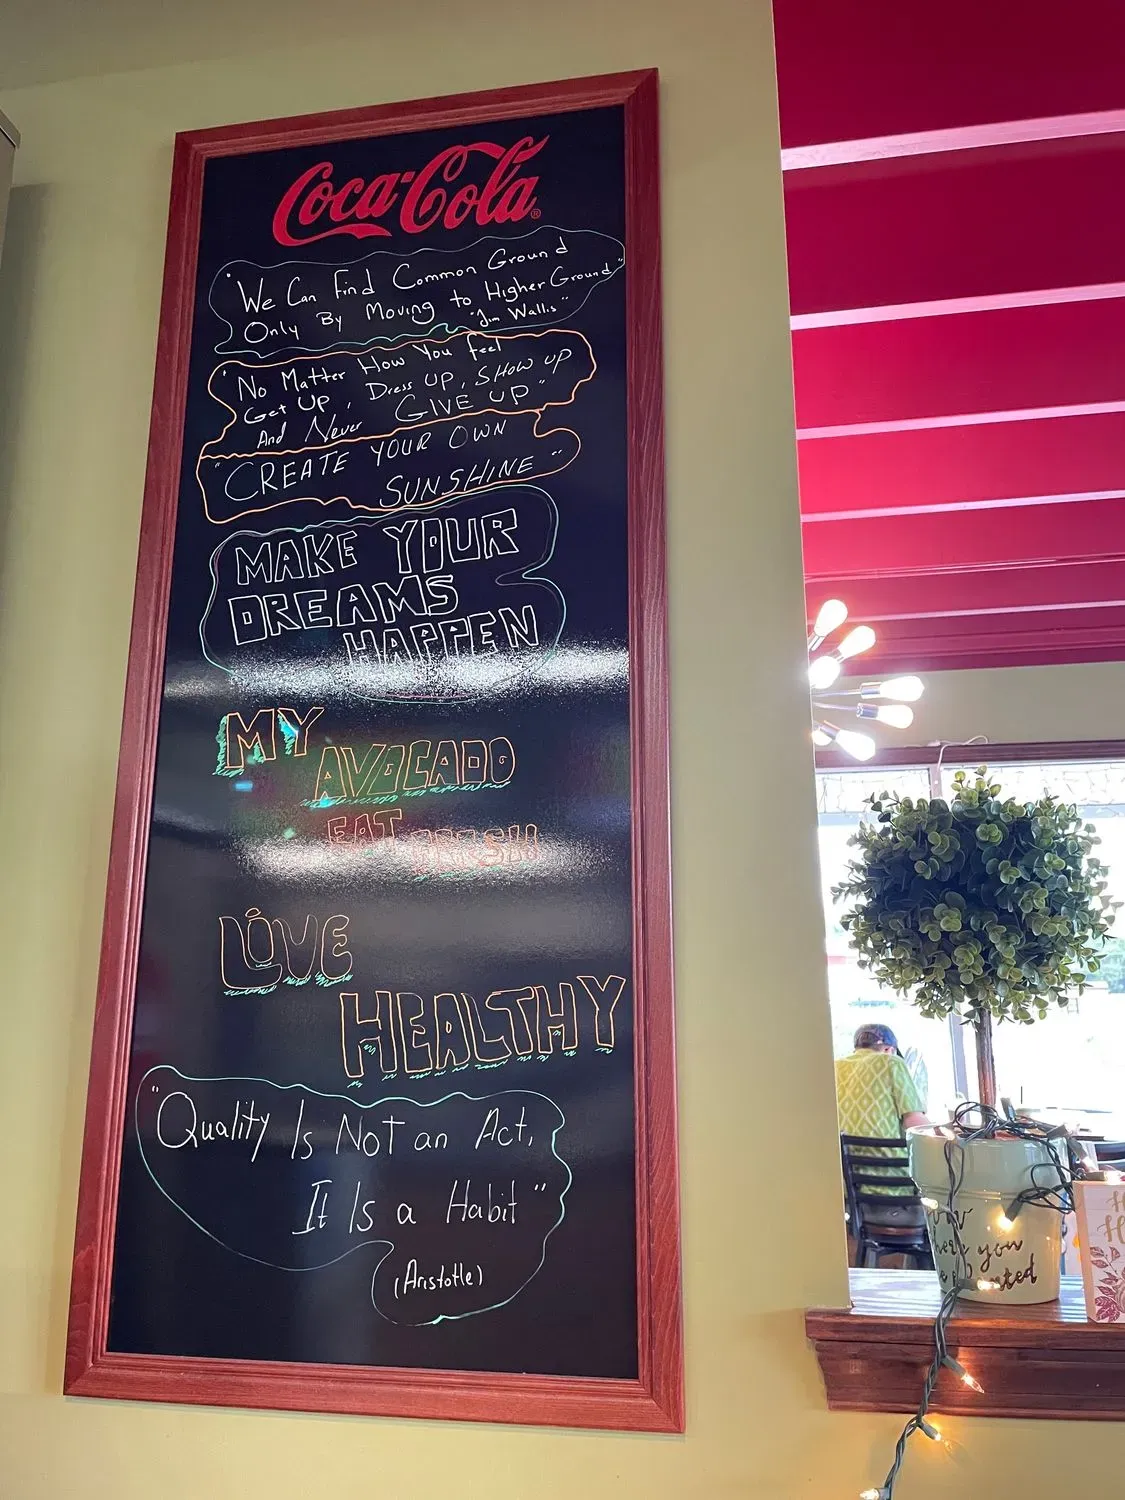 Coca-Cola®
"We Can Find Common Ground
Only By Moving to Higher Ground"
"Jim Wallis"
"No Matter How You feel
Get Up, Dress UP, SHow UP
And Never GIVE UP"
"CREATE YOUR OWN
SUNSHINE"
MAKE YOUR
DREAMS
HAPPEN
MY
AVOCADO
EAT FRESH
LIVE
HEALTHY
"Quality Is Not an Act,
It Is a Habit"
(Aristotle)
you